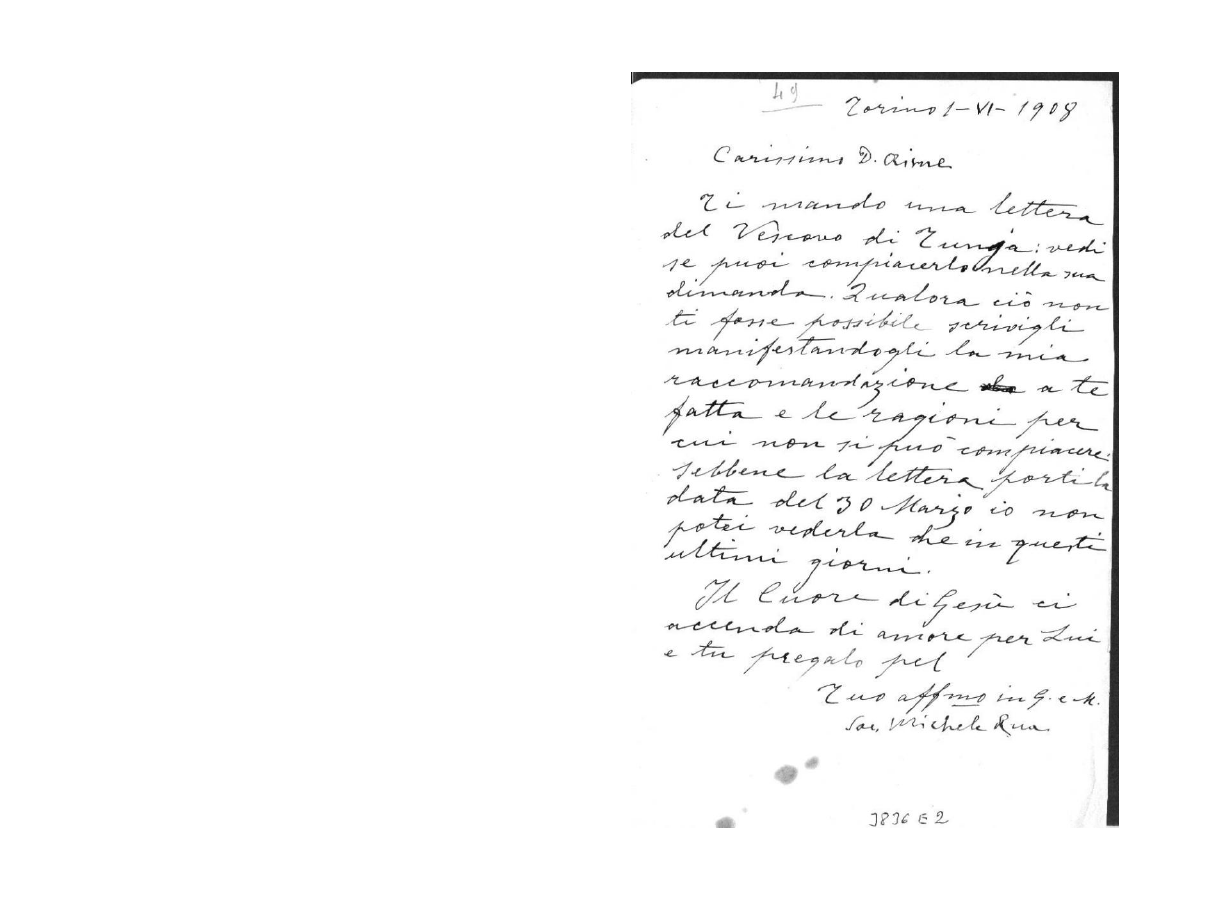 49
Torino 1-VI-1908
Carissimo D. Aime
Ti mando una lettera
del Vescovo di Tunga: vedi
se puoi compiacerlo nella sua
dimanda. Qualora ciò non
ti fosse possibile scrivigli
manifestandogli la mia
raccomandazione a te
fatta e le ragioni per
cui non si può compiacere.
Sebbene la lettera porti la
data del 30 Marzo io non
potei vederla che in questi
ultimi giorni.
Il Cuore di Gesù ci
accenda di amore per Lui
e tu pregalo pel
Tuo affmo in G. e M.
Sac. Michele Rua
3836 E 2